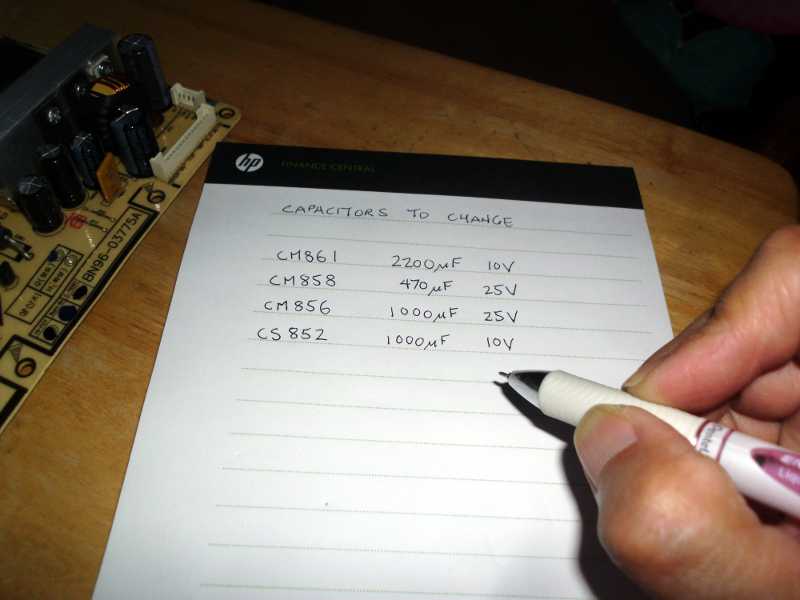 hp FINANCE CENTRAL
CAPACITORS TO CHANGE
CM861 2200µF 10V
CM858 470µF 25V
CM856 1000µF 25V
CS852 1000µF 10V
BN96-03775A
Pentel